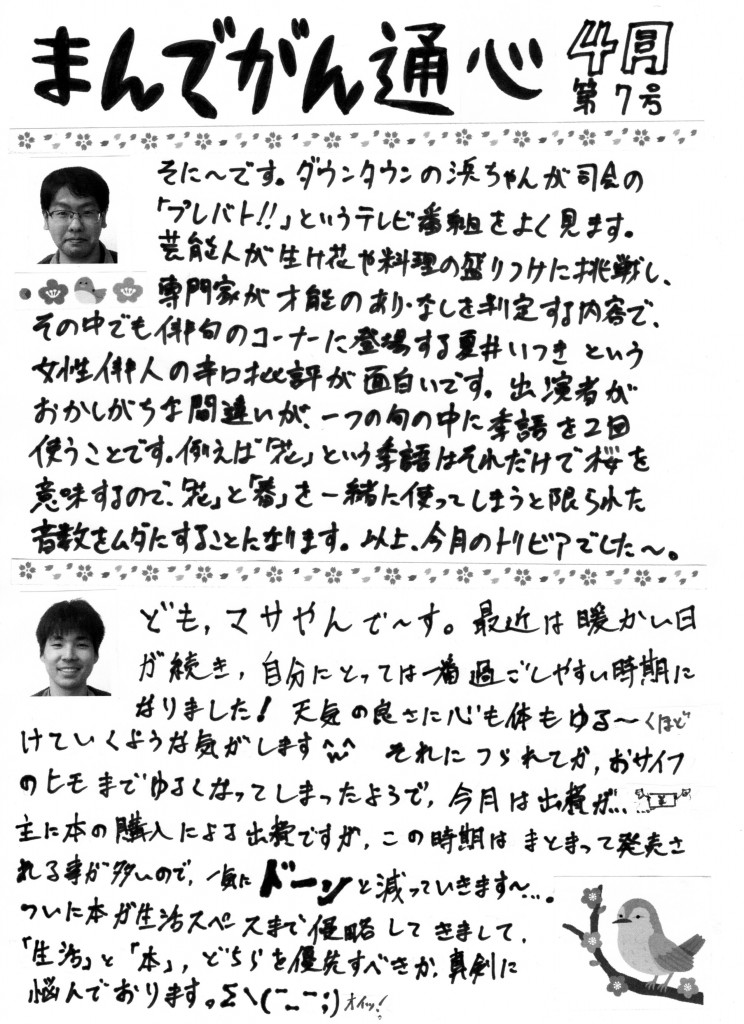 まんでがん通心 4月
第7号
そに〜です。ダウンタウンの浜ちゃんが司会の
「プレバト!!」というテレビ番組をよく見ます。
芸能人が生け花や料理の盛りつけに挑戦し、
専門家が才能のあり・なしを判定する内容で、
その中でも俳句のコーナーに登場する夏井いつきという
女性俳人の辛口批評が面白いです。出演者が
おかしがちな間違いが、一つの句の中に季語を2回
使うことです。例えば「花」という季語はそれだけで桜を
意味するので、「花」と「春」を一緒に使ってしまうと限られた
音数をムダにすることになります。以上、今月のトリビアでした〜。
ども、マサやんで〜す。最近は暖かい日
が続き、自分にとっては一番過ごしやすい時期に
なりました! 天気の良さに心も体もゆる〜くほど
けていくような気がします^w^ それにつられてか、おサイフ
のヒモまでゆるくなってしまったようで、今月は出費が...
主に本の購入による出費ですが、この時期はまとまって発売さ
れる事が多いので、一気にドーンと減っていきます〜...。
ついに本が生活スペースまで侵略してきまして、
「生活」と「本」、どちらを優先すべきか、真剣に
悩んでおります。Σ\(ー_ー;)オイッ!